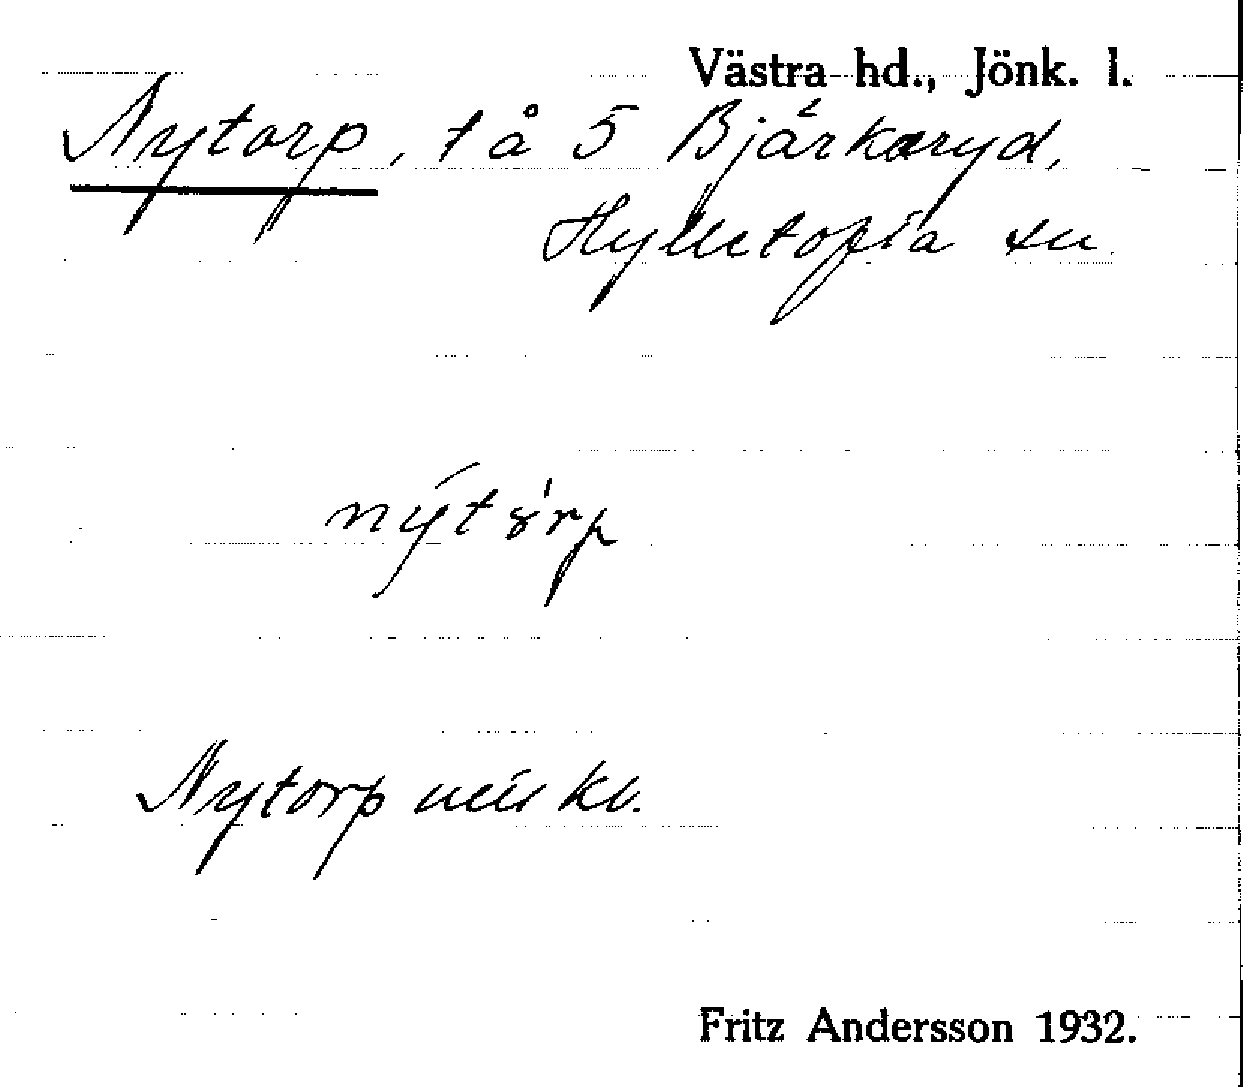 Västra hd., Jönk. l.
Nytorp, t å 5 Bjärkaryd,
Hylletofta sn.
nýtórp
Nytorp kv.
Fritz Andersson 1932.